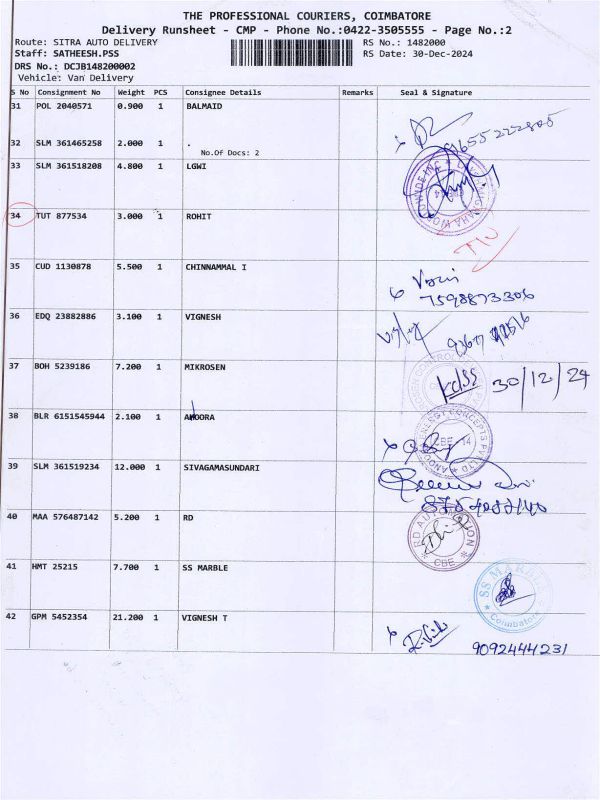 THE PROFESSIONAL COURIERS, COIMBATORE
Delivery Runsheet - CMP - Phone No.:0422-3505555 - Page No.:2
Route: SITRA AUTO DELIVERY RS No.: 1482000
Staff: SATHEESH.PSS RS Date: 30-Dec-2024
DRS No.: DCJB148200002
Vehicle: Van Delivery
S No Consignment No Weight PCS Consignee Details Remarks Seal & Signature
31 POL 2040571 0.900 1 BALMAID
32 SLM 361465258 2.000 1 .
No.Of Docs: 2
33 SLM 361518208 4.800 1 LGWI
34 TUT 877534 3.000 1 ROHIT
35 CUD 1130878 5.500 1 CHINNAMMAL I
7598873306
36 EDQ 23882886 3.100 1 VIGNESH
37 BOH 5239186 7.200 1 MIKROSEN
30/12/24
38 BLR 6151545944 2.100 1 ANOORA
CBE 14
39 SLM 361519234 12.000 1 SIVAGAMASUNDARI
40 MAA 576487142 5.200 1 RD
RD AUTOMATION
CBE
41 HMT 25215 7.700 1 SS MARBLE
SS MARBLE
Coimbatore
42 GPM 5452354 21.200 1 VIGNESH T
9092444231